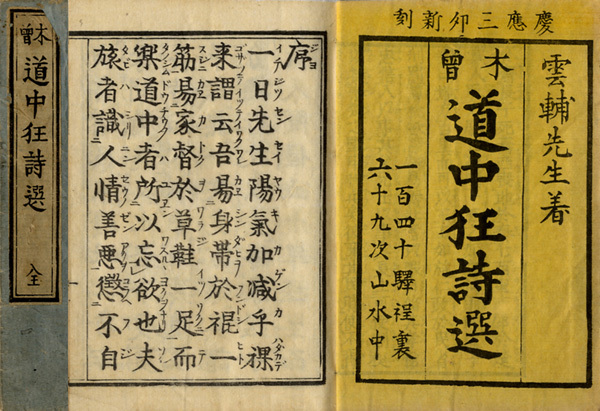 慶應三卯新刻
雲輔先生着
木曾
道中狂詩選
一百四十驛程裏
六十九次山水中
序
一日先生陽氣加减乎裸
来謂云吾易身帯於裩一
筋易家督於草鞋一足而
樂道中者所以忘欲也夫
旅者識人情善悪懲不自
木曾
道中狂詩選
全